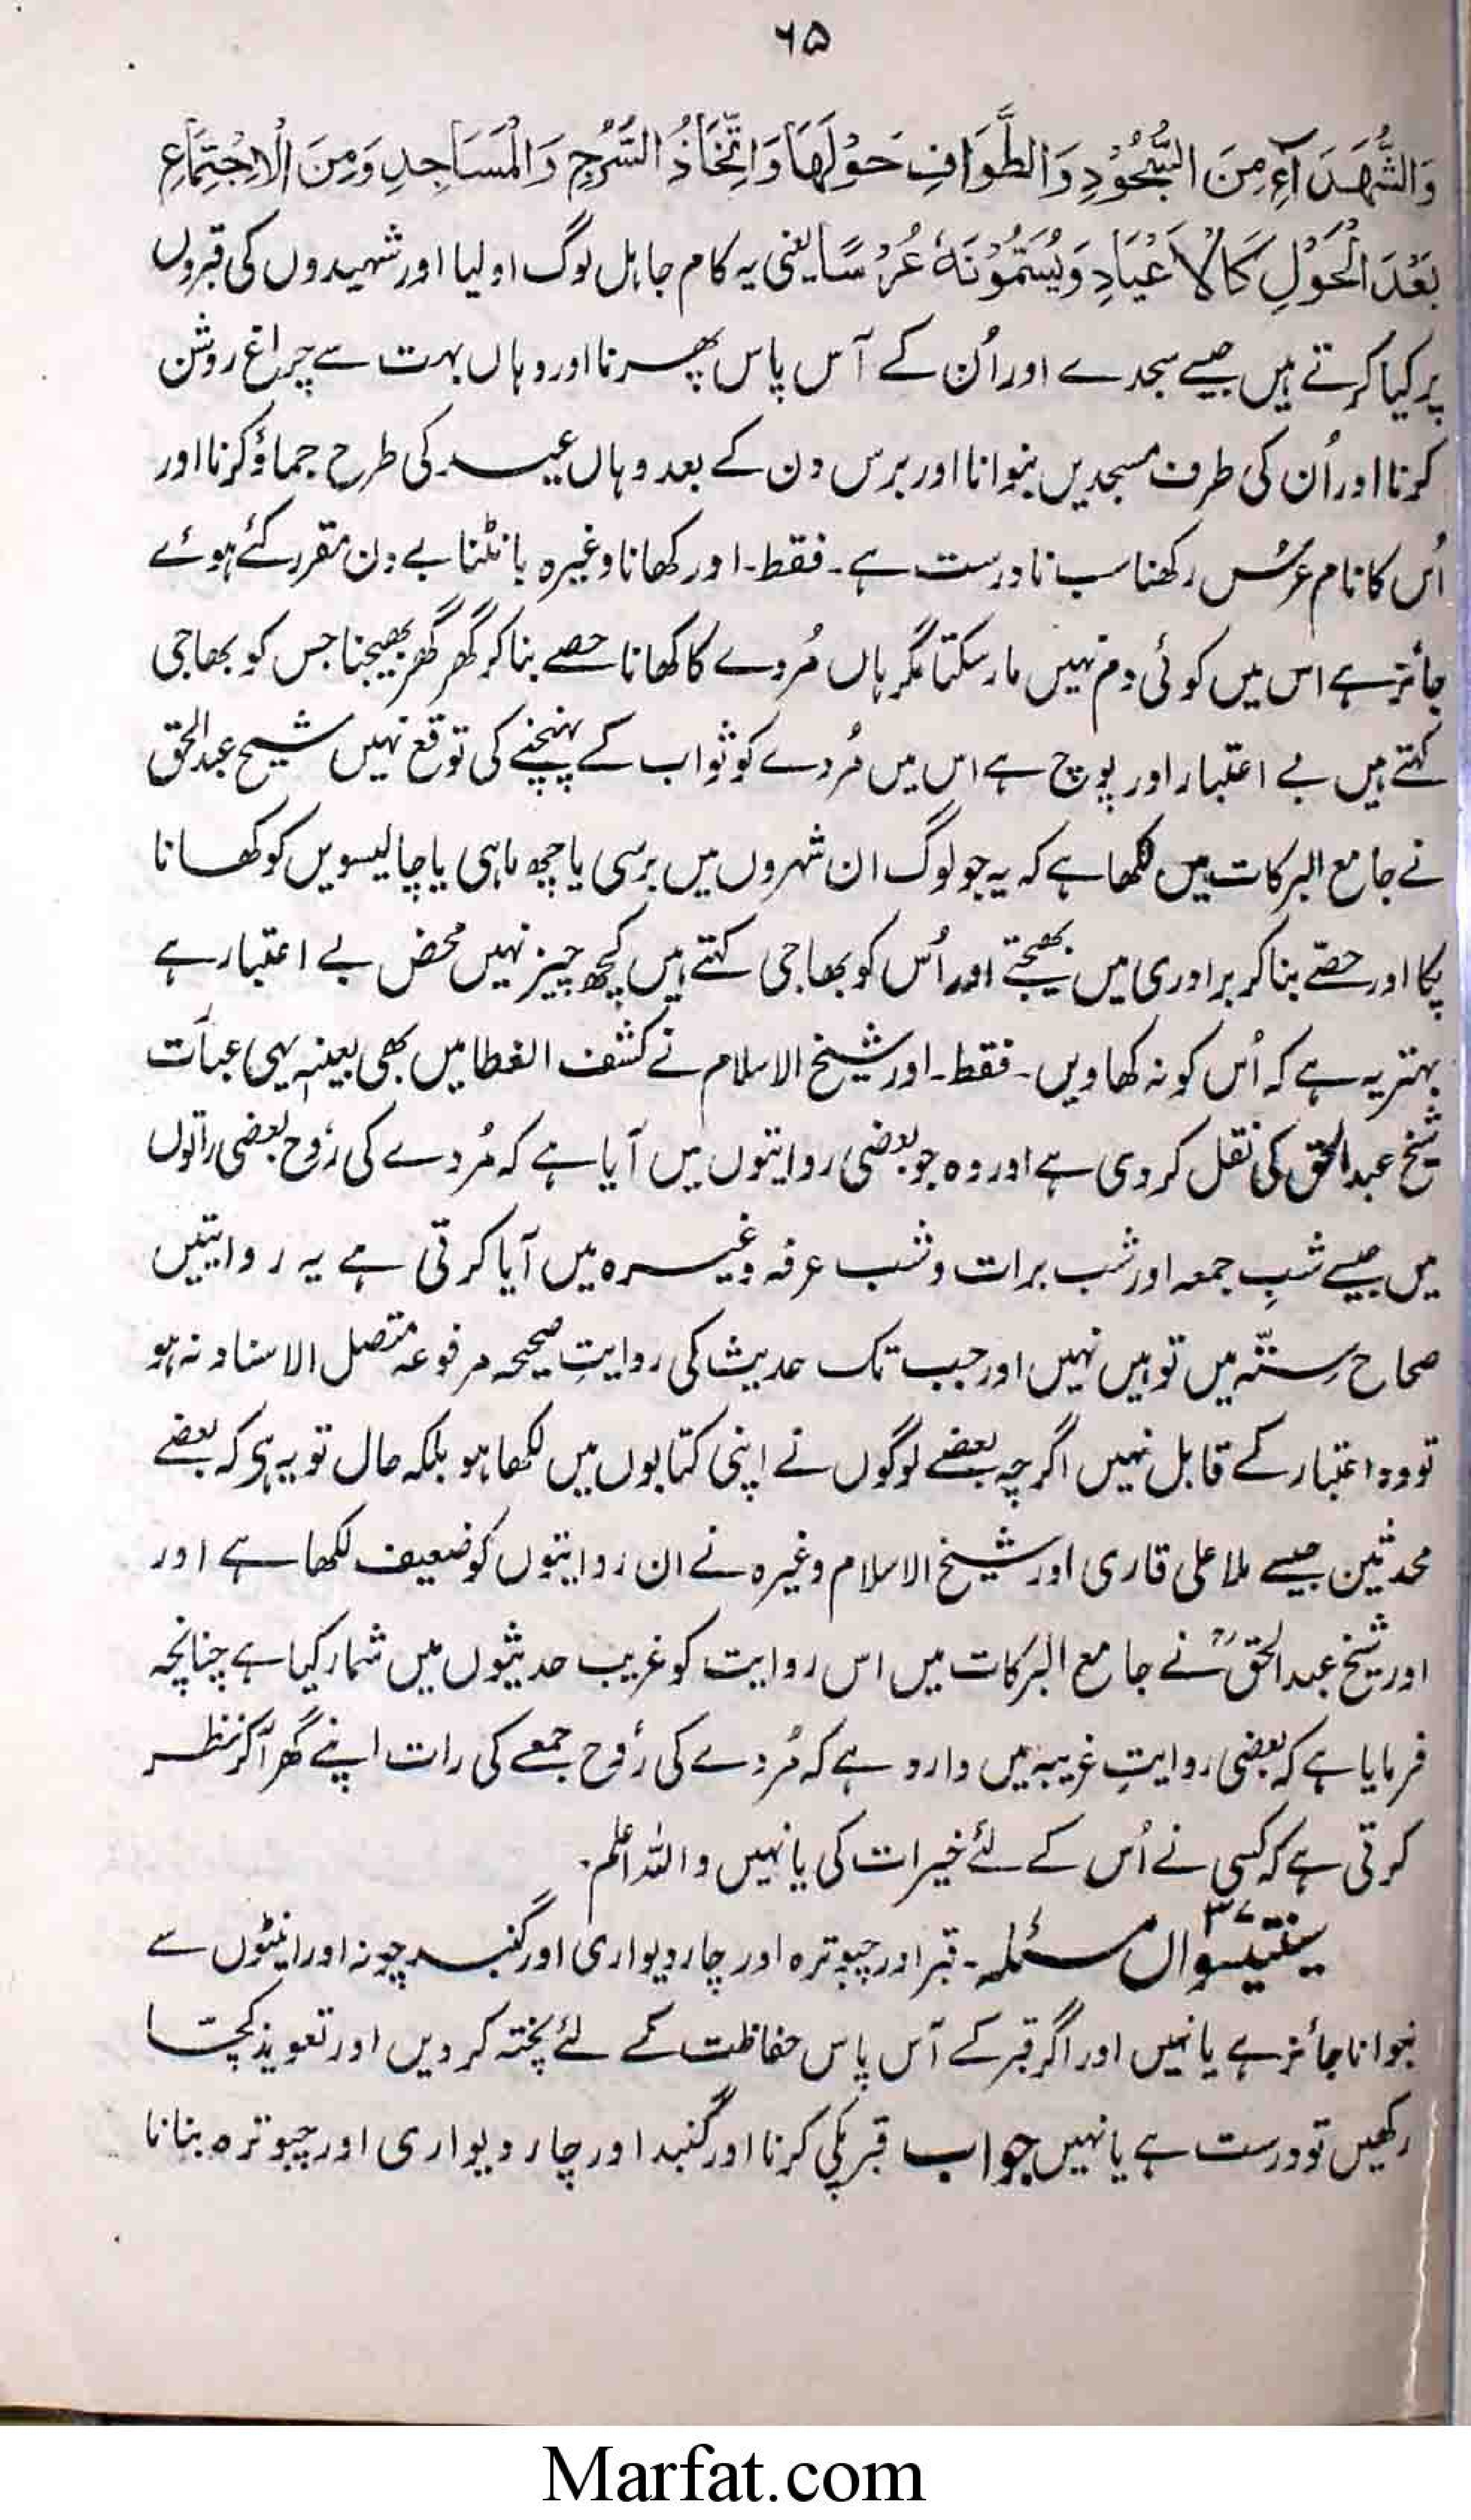 ۶۵
وَالشُّهَدَآءِ مِنَ السُّجُوْدِ وَالطَّوَافِ حَوْلَهَا وَاتِّخَاذُ السُّرُجِ وَالْمَسَاجِدِ وَمِنَ الْاِجْتِمَاعِ
بَعْدَ الْحَوْلِ كَالْاَعْيَادِ وَيُسَمُّوْنَهٗ عُرْسًا یعنی یہ کام جاہل لوگ اولیا اور شہیدوں کی قبروں
پر کیا کرتے ہیں جیسے سجدے اور اُن کے آس پاس پھرنا اور وہاں بہت سے چراغ روشن
کرنا اور اُن کی طرف مسجدیں بنوانا اور برس دن کے بعد وہاں عید کی طرح جماؤ کرنا اور
اُس کا نام عُرس رکھنا سب نادرست ہے۔ فقط۔ اور کھانا وغیرہ بانٹنا بے دن مقرر کئے ہوئے
جائز ہے اس میں کوئی دم نہیں مار سکتا مگر ہاں مُردے کا کھانا حصے بنا کر گھر گھر بھیجنا جس کو بھاجی
کہتے ہیں بے اعتبار اور پوچ ہے اس میں مُردے کو ثواب کے پہنچنے کی توقع نہیں شیخ عبدالحق
نے جامع البرکات میں لکھا ہے کہ یہ جو لوگ ان شہروں میں برسی یا چھ ماہی یا چالیسویں کو کھانا
پکا اور حصّے بنا کر برادری میں بھیجتے اور اُس کو بھاجی کہتے ہیں کچھ چیز نہیں محض بے اعتبار ہے
بہتر یہ ہے کہ اُس کو نہ کھاویں۔ فقط۔ اور شیخ الاسلام نے کشف الغطا میں بھی بعینہٖ یہی عبارت
شیخ عبدالحق کی نقل کر دی ہے اور وہ جو بعضی روایتوں میں آیا ہے کہ مُردے کی رُوح بعضی راتوں
میں جیسے شبِ جمعہ اور شب برات و شب عرفہ وغیرہ میں آیا کرتی ہے یہ روایتیں
صحاح سِتّہ میں تو ہیں نہیں اور جب تک حدیث کی روایتِ صحیحہ مرفوعہ متصل الاسناد نہ ہو
تو وہ اعتبار کے قابل نہیں اگرچہ بعضے لوگوں نے اپنی کتابوں میں لکھا ہو بلکہ حال تو یہ ہی کہ بعضے
محدثین جیسے ملا علی قاری اور شیخ الاسلام وغیرہ نے ان روایتوں کو ضعیف لکھا ہے اور
اور شیخ عبدالحقؒ نے جامع البرکات میں اس روایت کو غریب حدیثوں میں شمار کیا ہے چنانچہ
فرمایا ہے کہ بعضی روایتِ غریبہ میں وارد ہے کہ مُردے کی رُوح جمعے کی رات اپنے گھر آکر نظر
کرتی ہے کہ کسی نے اُس کے لئے خیرات کی یا نہیں واللہ اعلم۔
سینتیسواں ۳۷ مسئلہ۔ قبر اور چبوترہ اور چار دیواری اور گنبد چونہ اور اینٹوں سے
بنوانا جائز ہے یا نہیں اور اگر قبر کے آس پاس حفاظت کے لئے پختہ کر دیں اور تعویذ کچّا
رکھیں تو درست ہے یا نہیں جواب قبر پکی کرنا اور گنبد اور چار دیواری اور چبوترہ بنانا
Marfat.com